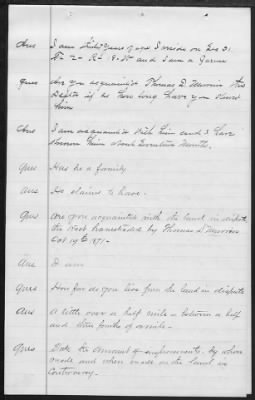 Ans I am fifty years of age I reside on Sec 31
T- 2- R- 18- W and I am a farmer
Ques Are you acquainted Thomas D. Morrow this
if so how long have you known
him
Ans I am acquainted with him and I have
known him about twenty months.
Ques Has he a family
Ans He claims to have.
Ques Are you acquainted with the land in dispute
the West homesteaded by Thomas D. Morrow
Oct 19th 1871.
Ans I am
Ques How far do you live from the land in dispute
Ans A little over a half mile - between a half
and three fourths of a mile.
Ques State the amount of improvements. by whom
made and when made on the land in
controversy.